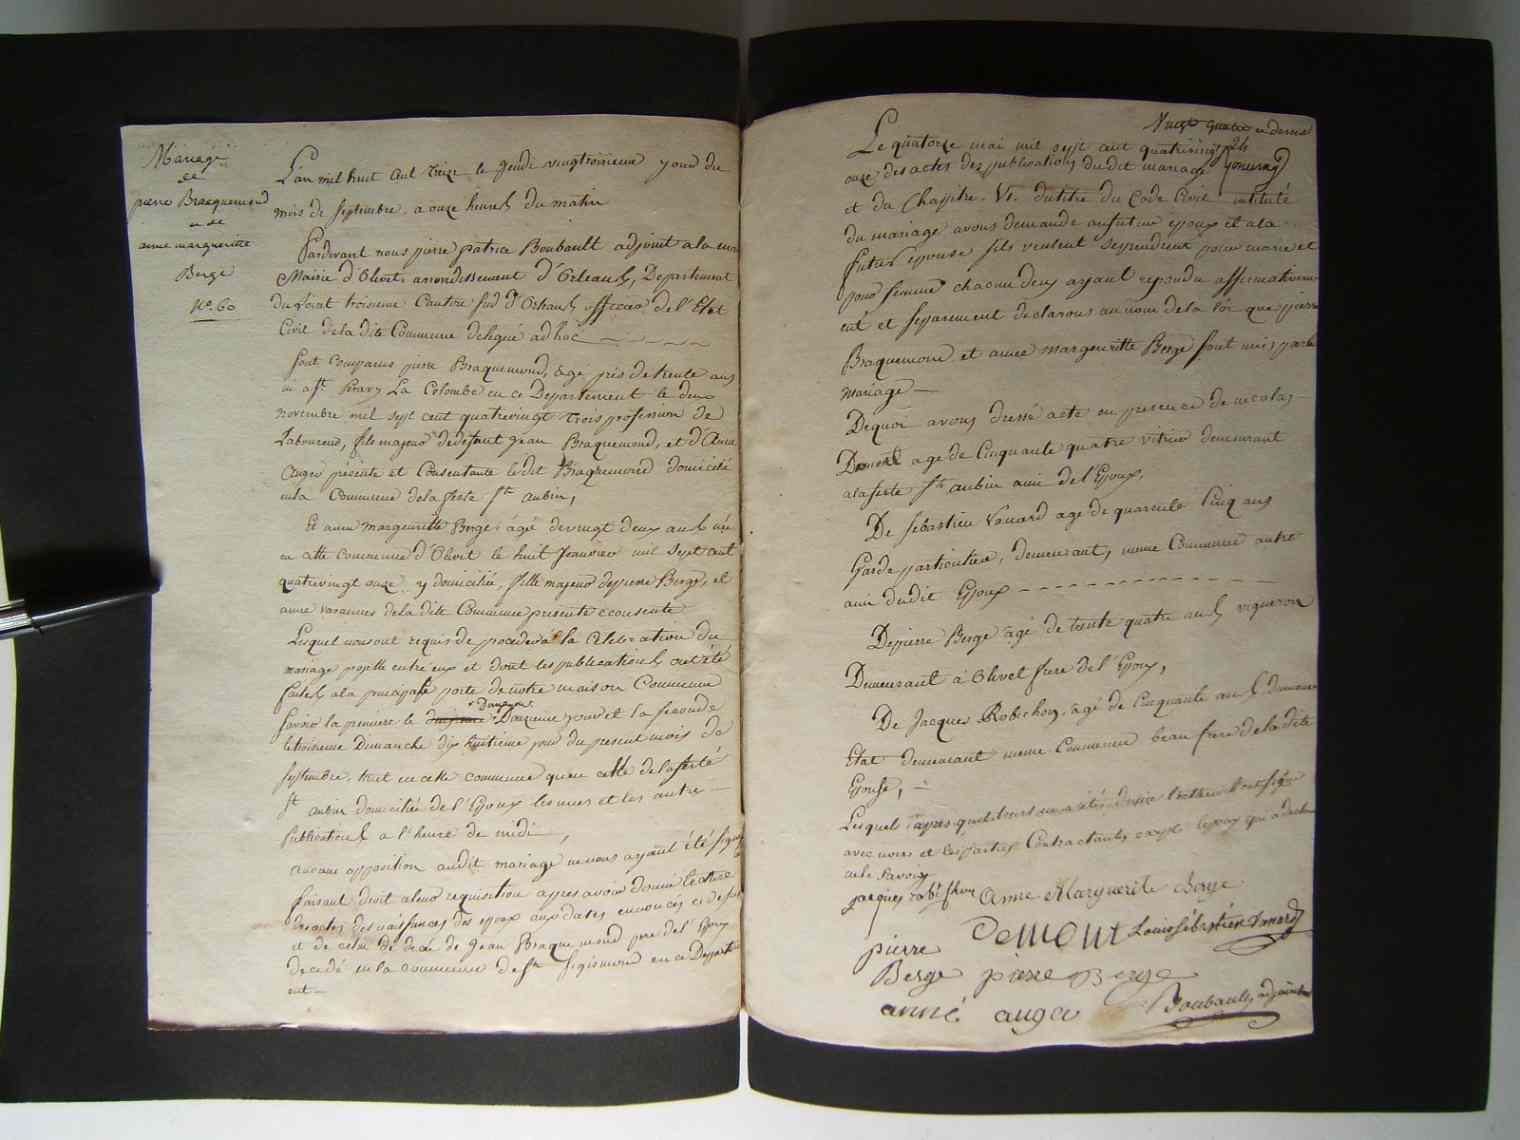 Mariage
de
pierre Braquemond
et de
anne margueritte
Berge
No. 60
L'an mil huit Cent treize le Jeudi vingttroisieme jour du
mois de septembre a onze heures du matin
Pardevant nous pierre patrice Boubault adjoint a la
Mairie d'Olivet arrondissement d'Orleans, Departement
du Loiret troisieme Canton sud d'Orleans officier de l'Etat
Civil de la dite Commune delegué ad hoc
sont comparus pierre Braquemond, agé près de trente ans
La Colombe en ce Departement le deux
novembre mil sept cent quatrevingt trois profession de
Laboureur, fils majeur de defunt jean Braquemond, et d'Anne
Auger présente et Consentante le dit Braquemond domicilié
en la Commune de la ferté st aubin,
Et anne margueritte Berge agé de vingt deux ans née
en cette Commune d'Olivet le huit Janvier mil sept cent
quatrevingt onze y domiciliée, fille majeur de pierre Berge, et
anne de la dite Commune presente consente
Lesquels nous ont requis de proceder a la Celebration du
mariage projetté entre eux et dont les publications ont été
faites a la principalle porte de notre maison Commune
savoir la premiere le Douzieme jour et la seconde
le troisieme Dimanche dix huitieme jour du present mois de
septembre, tant en cette commune qu'en celle de la ferté
st aubin domicilié de l'Epoux les unes et les autre
Publications a l'heure de midi,
aucune opposition audit mariage ne nous ayant été signi
faisant droit a leur requisition apres avoir donné lecture
des actes des naissances des epoux aux dates enoncés ci dessus
et de celui de deces de Jean Braquemond pere de l'Epoux
decedé en la commune de st sigismond en ce Departem
ent
Vingt quatre
24
Le quatorze mai mil sept cent quatrevingt
onze des actes des publications du dit mariage
et du Chapitre VI. du titre du Code Civil intitulé
du mariage avons demandé au futur epoux et a la
future epouse s'ils veulent se prendre pour mari et
pour femme chacun deux ayant repondu affirmativem
ent et separement declarons au nom de la loi que pierre
Braquemond et anne margueritte Berge sont unis par le
mariage
De quoi avons dressé acte en presence de nicolas
Demont agé de Cinquante quatre vitrier demeurant
a la ferté st aubin ami de l'Epoux,
De sebastien Vanard agé de quarente Cinq ans
Garde particulier, demeurant, meme Commune autre
ami dudit Epoux
De pierre Berge agé de trente quatre ans vigneron
Demeurant à Olivet frere de l'Epoux,
De Jacques Robichon, agé de Cinquante ans du meme
Etat demeurant meme Commune beau frere de la dite
Epouse,
Lesquels apres
avec nous et les parties Contractantes excepté l'epoux qui a declaré
ne le savoir
jacques robichon Anne Marguerite Berge
Demont Louis sébastien Vanard
pierre
Berge pierre Berge
anne auger Boubault, adjoint